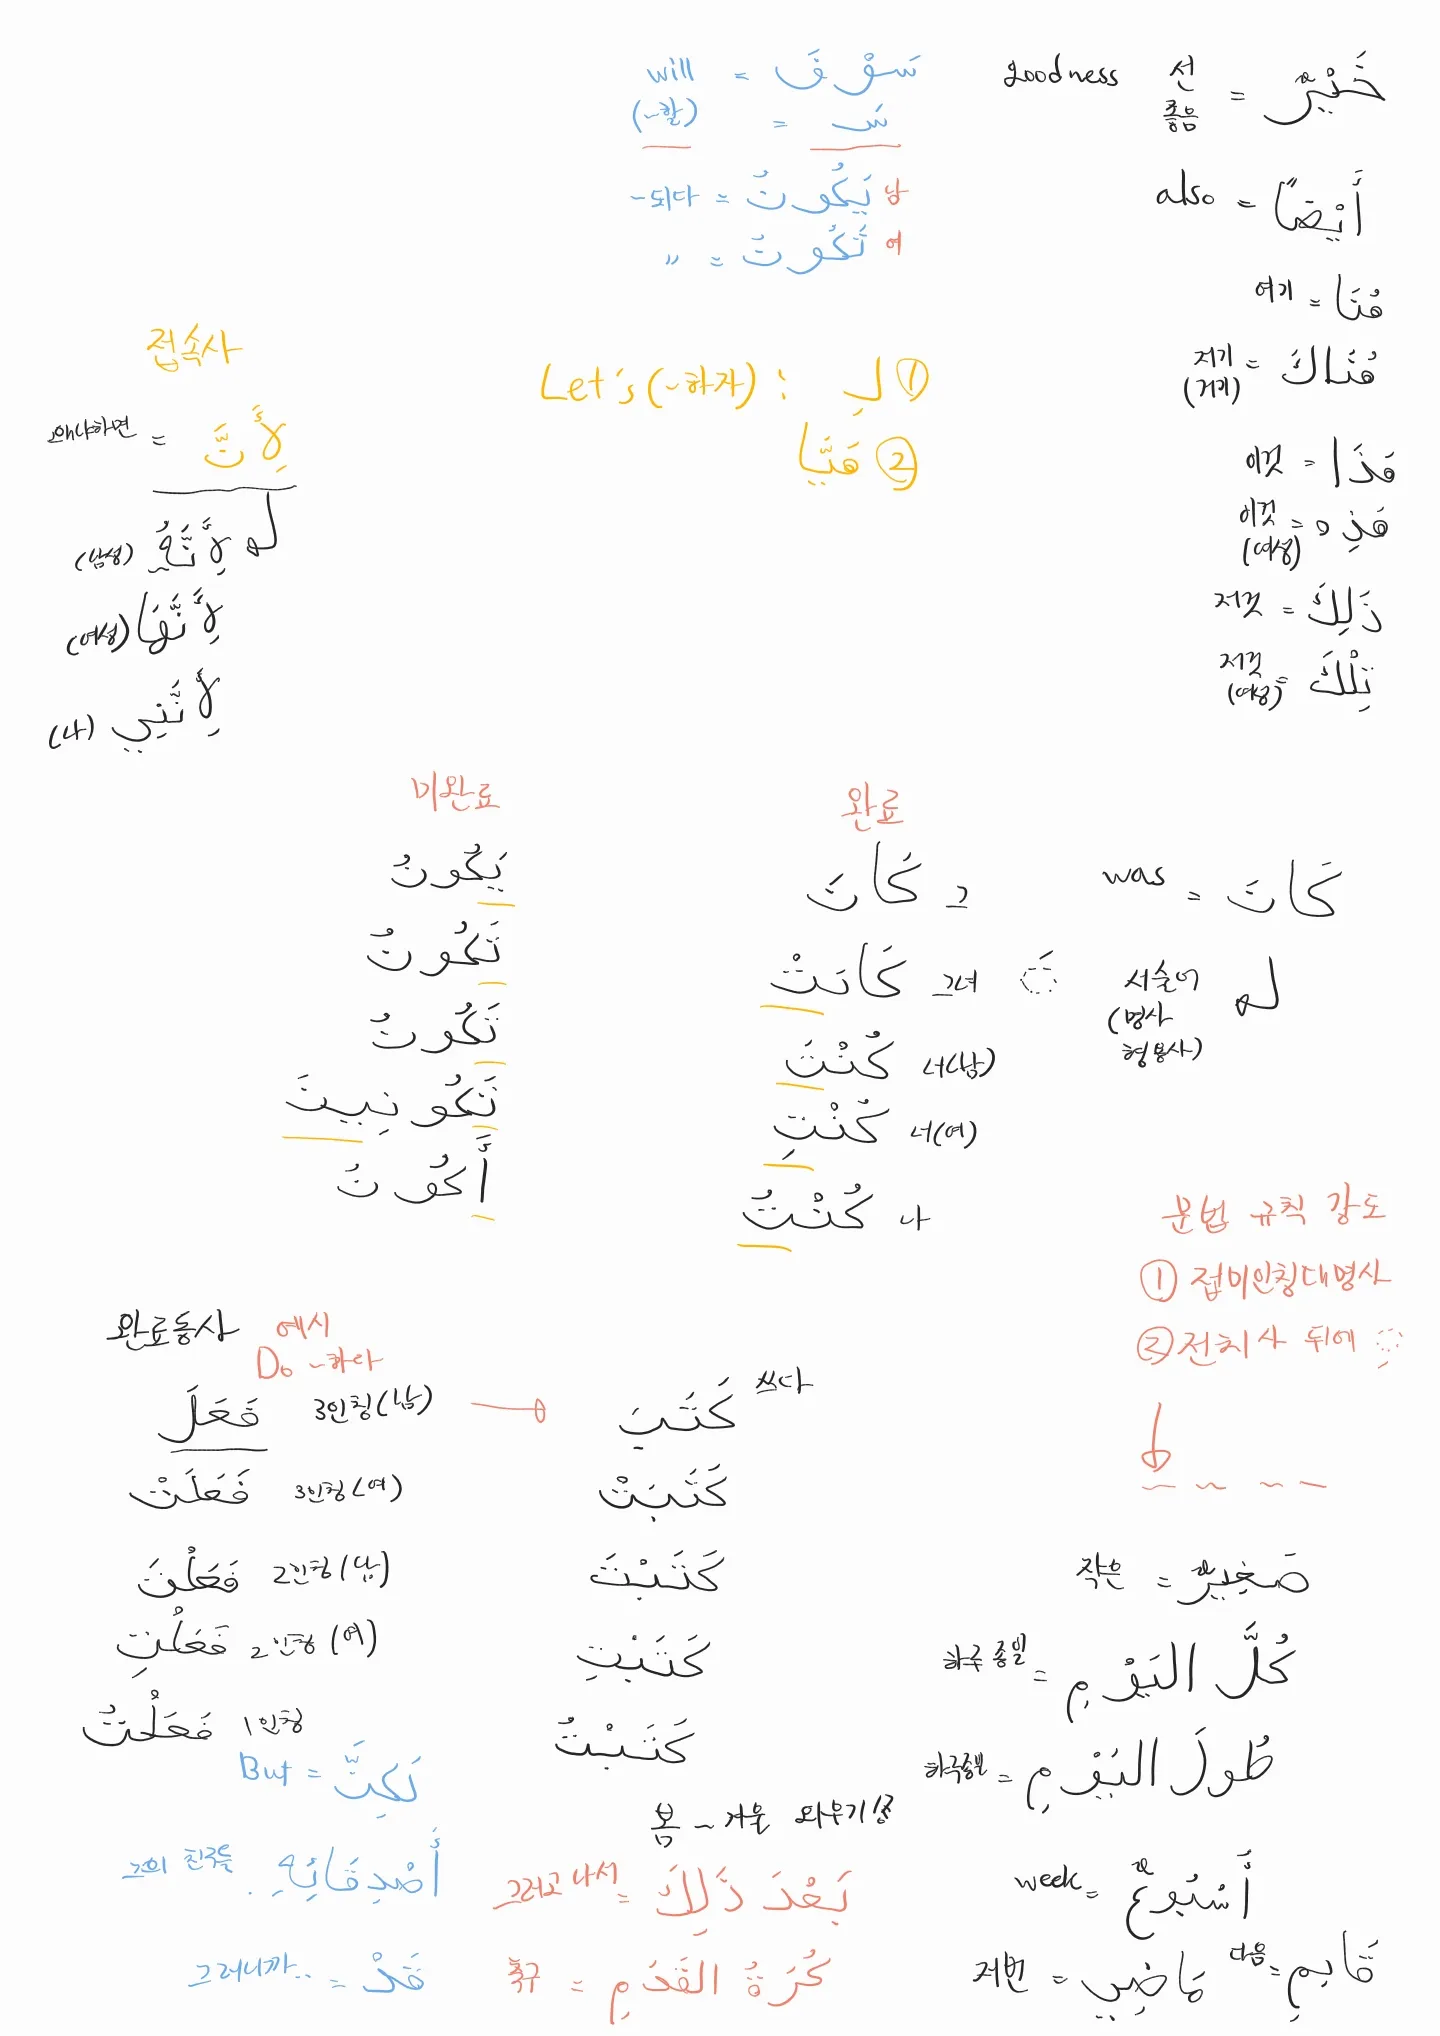 will = سَوْفَ
(~할) = سَـ
~되다 = يَكُونُ 남
〃 = تَكُونُ 여
goodness 선 좋음 = خَيْرٌ
also = أَيْضًا
여기 = هُنَا
저기 (거기) = هُنَاكَ
이것 = هَذَا
이것 (여성) = هَذِه
저것 = ذَلِكَ
저것 (여성) = تِلْكَ
접속사
왜냐하면 = لِأَنَّ
(남성) لِأَنَّهُ
(여성) لِأَنَّهَا
(나) لِأَنَّنِي
Let's (~하자) : لِـ ①
هَيَّا ②
미완료
يَكُونُ
تَكُونُ
تَكُونُ
تَكُونِينَ
أَكُونُ
완료
كَانَ 그
كَانَتْ 그녀
كُنْتَ 너(남)
كُنْتِ 너(여)
كُنْتُ 나
was = كَانَ
서술어
(명사
형용사)
문법 규칙 강도
① 접미인칭대명사
② 전치사 뒤에
완료동사 예시
Do ~하라
فَعَلَ 3인칭(남)
فَعَلَتْ 3인칭(여)
فَعَلْتَ 2인칭(남)
فَعَلْتِ 2인칭(여)
فَعَلْتُ 1인칭
كَتَبَ 쓰다
كَتَبَتْ
كَتَبْتَ
كَتَبْتِ
كَتَبْتُ
But = لَكِنَّ
그의 친구들 أَصْدِقَائِهِ
그러니까.. = قَدْ
봄 ~ 겨울 외우기
그러고 나서 = بَعْدَ ذَلِكَ
축구 = كُرَةُ القَدَمِ
작은 = صَغِيرٌ
하루 종일 = كُلَّ اليَوْمِ
하루종일 = طُولَ اليَوْمِ
week = أُسْبُوعٌ
저번 = مَاضِي
다음 = قَادِمِ